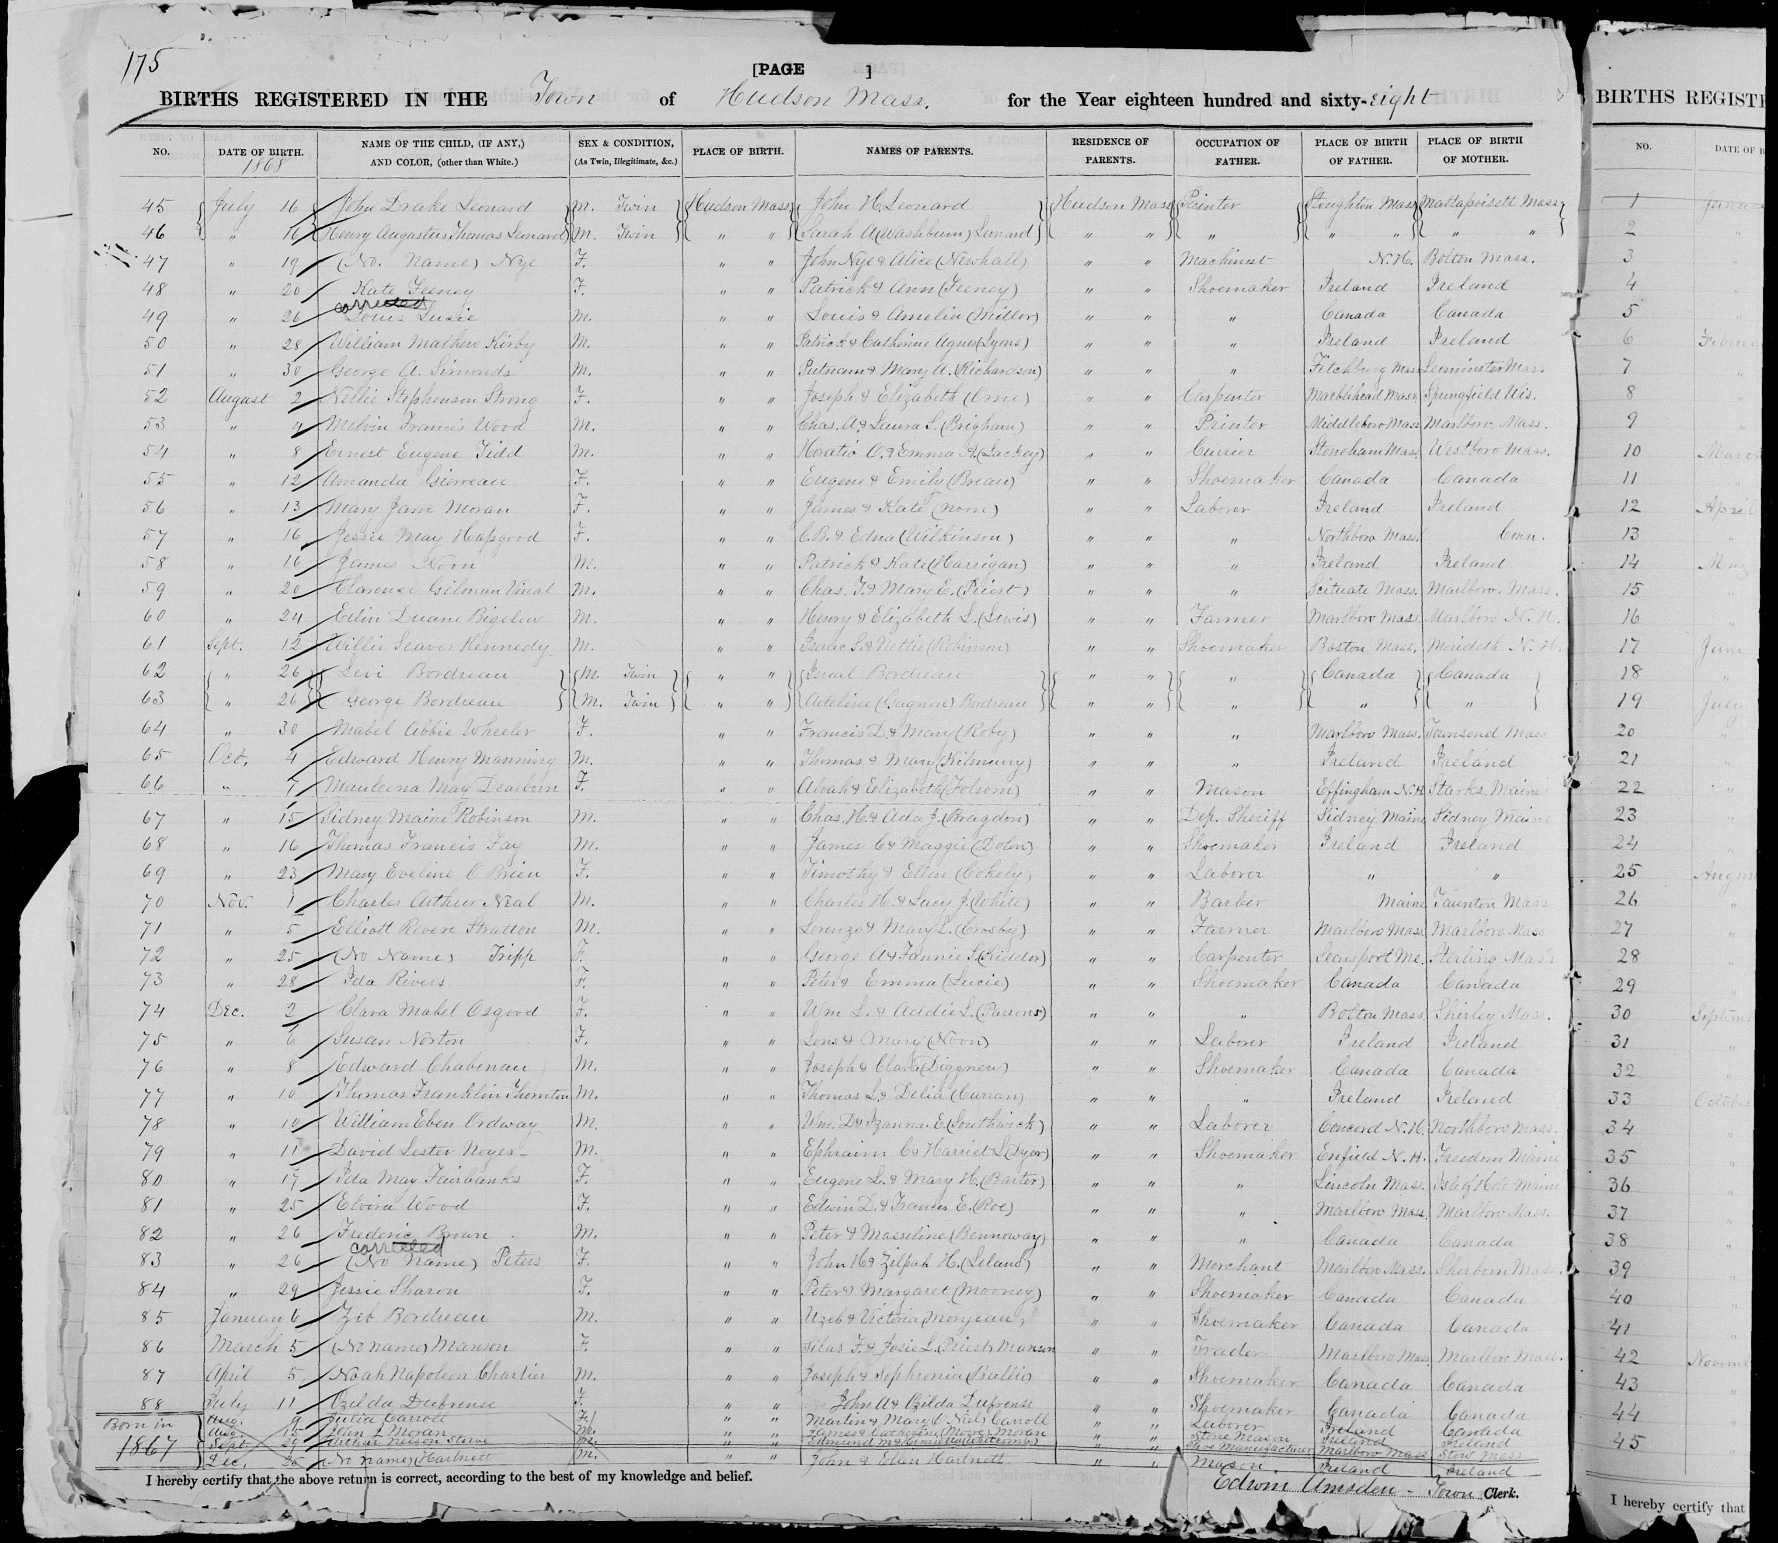 175
[PAGE ]
BIRTHS REGISTERED IN THE Town of Hudson Mass. for the Year eighteen hundred and sixty-eight
NO. DATE OF BIRTH. 1868 NAME OF THE CHILD, (IF ANY,) AND COLOR, (other than White.) SEX & CONDITION, (As Twin, Illegitimate, &c.) PLACE OF BIRTH. NAMES OF PARENTS. RESIDENCE OF PARENTS. OCCUPATION OF FATHER. PLACE OF BIRTH OF FATHER. PLACE OF BIRTH OF MOTHER.
45 July 16 John Drake Leonard M. Twin Hudson Mass John H. Leonard Hudson Mass Painter Stoughton Mass Mattapoisett Mass
46 " 16 Henry Augustus Thomas Leonard M. Twin " " Sarah A (Washburn) Leonard " " " " " " "
47 " 19 (No Name) Nye F. " " John Nye & Alice (Newhall) " " Machinist N.H. Bolton Mass.
48 " 20 Kate Feeney F. " " Patrick & Ann (Feeney) " " Shoemaker Ireland Ireland
corrected
49 " 26 Louis Lucie M. " " Louis & Amelia (Miller) " " " Canada Canada
50 " 28 William Mathew Kirby M. " " Patrick & Catherine Agnes (Lyons) " " " Ireland Ireland
51 " 30 George A. Simonds M. " " Putnam & Mary A. (Richardson) " " " Fitchburg Mass Leominster Mass
52 August 2 Nellie Stephenson Strong F. " " Joseph & Elizabeth (Orne) " " Carpenter Marblehead Mass. Springfield Wis.
53 " 4 Melvin Francis Wood M. " " Chas. A. & Laura L. (Brigham) " " Painter Middleboro Mass Marlboro, Mass.
54 " 8 Ernest Eugene Tidd M. " " Horatio O. & Emma A. (Lackey) " " Currier Stoneham Mass. Westboro Mass.
55 " 12 Amanda Gierreau F. " " Eugene & Emily (Breau) " " Shoemaker Canada Canada
56 " 13 Mary Jane Moran F. " " James & Kate (Noon) " " Laborer Ireland Ireland
57 " 16 Jessie May Hapgood F. " " C.B. & Edna (Wilkinson) " " " Northboro Mass. Conn.
58 " 16 James Noon M. " " Patrick & Kate (Harrigan) " " " Ireland Ireland
59 " 20 Clarence Gilman Vinal M. " " Chas. T. & Mary E. (Priest) " " " Scituate Mass. Marlboro, Mass.
60 " 24 Edin Duane Bigelow M. " " Henry & Elizabeth L. (Lewis) " " Farmer Marlboro Mass. Marlboro N.H.
61 Sept. 12 Willie Seaver Kennedy M. " " Isaac S. & Nettie (Robinson) " " Shoemaker Boston Mass. Merideth N.H.
62 " 26 Levi Bordreau M. Twin " " Israel Bordreau " " " Canada Canada
63 " 26 George Bordreau M. Twin " " Adeline (Gagnon) Bordreau " " " " "
64 " 30 Mabel Abbie Wheeler F. " " Francis D. & Mary (Roby) " " " Marlboro Mass. Townsend Mass
65 Oct. 4 Edward Henry Manning M. " " Thomas & Mary (Kilmurry) " " " Ireland Ireland
66 " 7 Mauleena May Dearborn F. " " Alvah & Elizabeth (Folsom) " " Mason Effingham N.H. Starks, Maine
67 " 15 Sidney Maine Robinson M. " " Chas. H. & Ada J. (Bragdon) " " Dep. Sheriff Sidney Maine Sidney Maine
68 " 16 Thomas Francis Fay M. " " James C & Maggie (Dolon) " " Shoemaker Ireland Ireland
69 " 23 Mary Eveline O'Brien F. " " Timothy & Ellen (Cokely) " " Laborer " "
70 Nov. 1 Charles Arthur Neal M. " " Charles H. & Lucy J. (White) " " Barber Maine Taunton Mass
71 " 5 Elliott Revere Stratton M. " " Lorenzo & Mary L. (Crosby) " " Farmer Marlboro Mass. Marlboro Mass
72 " 25 (No Name) Tripp F. " " George A & Fannie S. (Kidder) " " Carpenter Searsport Me. Sterling Mass
73 " 28 Ida Rivers F. " " Peter & Emma (Lucie) " " Shoemaker Canada Canada
74 Dec. 2 Clara Mabel Osgood F. " " Wm L. & Addie L. (Parsons) " " " Bolton Mass. Shirley Mass.
75 " 6 Susan Norton F. " " & Mary (Noon) " " Laborer Ireland Ireland
76 " 8 Edward Chabenau M. " " Joseph & Clara (Diggnew) " " Shoemaker Canada Canada
77 " 10 Thomas Franklin Thornton M. " " Thomas L. & Delia (Curran) " " " Ireland Ireland
78 " 10 William Eben Ordway M. " " Wm. D & Izanna E. (Southwick) " " Laborer Concord N.H. Northboro Mass.
79 " 11 David Lester Noyes M. " " Ephraim C & Harriet L. (Dyer) " " Shoemaker Enfield N.H. Freedom Maine
80 " 17 Ida May Fairbanks F. " " Eugene L. & Mary H. (Barter) " " " Lincoln Mass. Isle of Holt Maine
81 " 25 Elvira Wood F. " " Edwin D. & Frances E. (Roe) " " " Marlboro Mass. Marlboro Mass.
82 " 26 Frederic Brown M. " " Peter & Masseline (Bennoway) " " " Canada Canada
corrected
83 " 26 (No Name) Peters F. " " John H & Zilpah H. (Leland) " " Merchant Marlboro Mass. Sherborn Mass.
84 " 29 Jessie Sharon F. " " Peter & Margaret (Mooney) " " Shoemaker Canada Canada
85 January 6 Zeb Bordreau M. " " Uzeb & Victoria Monjeau " " Shoemaker Canada Canada
86 March 5 (No name) Manson F. " " Silas F. & Josie L. (Priest) Manson " " Trader Marlboro Mass Marlboro Mass.
87 April 5 Noah Napoleon Chartier M. " " Joseph & Sophronia (Ballio) " " Shoemaker Canada Canada
88 July 11 Ozilda Dufrense F. " " John A & Ozilda Dufrense " " Shoemaker Canada Canada
Born in Aug. 9 Julia Carroll F. " " Martin & Mary Carroll " " Laborer Ireland Canada
1867 Aug. 15 John L Moran M. " " James & Catherine Moran " " Stone Mason Ireland Ireland
Sept. 29 Arthur Nelson Stowe M. " " Edmund M & (Whitcomb) " " Shoe Manufacturer Marlboro Mass Stow Mass
Dec. 25 No name Hartnett M. " " John & Ellen Hartnett " " Mason Ireland Ireland
I hereby certify that the above return is correct, according to the best of my knowledge and belief.
Edwin Amsden - Town Clerk.
BIRTHS REGISTE
NO. DATE OF B
1
2
3
4
5
6
7
8
9
10 March
11
12 April
13
14 May
15
16
17 June
18
19 July
20
21
22
23
24
25
26
27
28
29
30
31
32
33
34
35
36
37
38
39
40
41
42
43
44
45
I hereby certify that